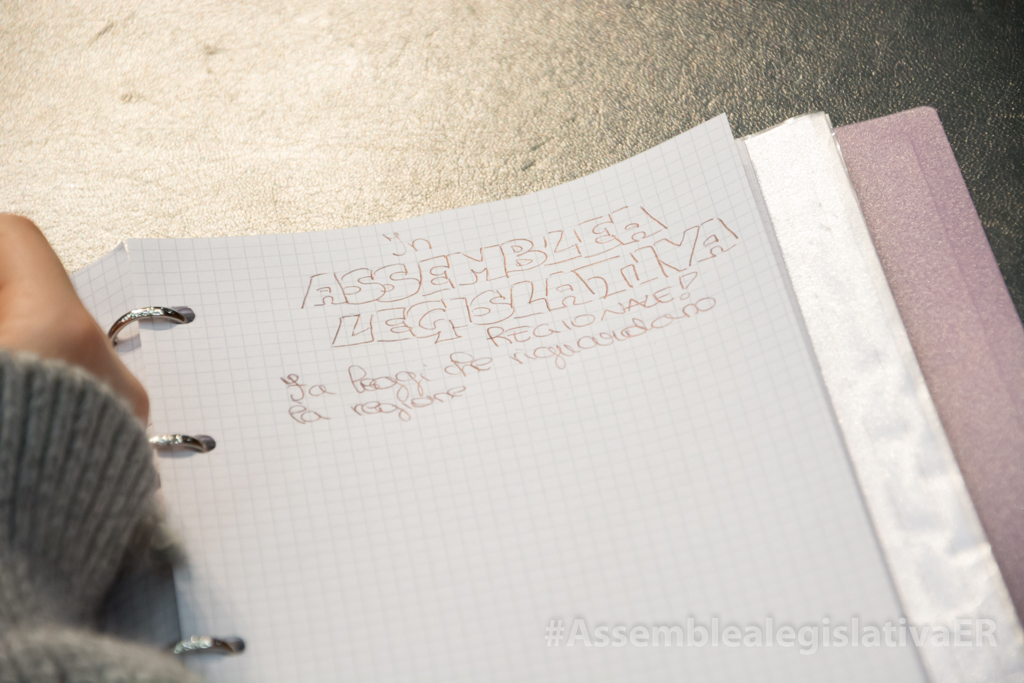 In
ASSEMBLEA
LEGISLATIVA
REGIONALE!
Fa leggi che riguardano
la regione
#AssemblealegislativaER